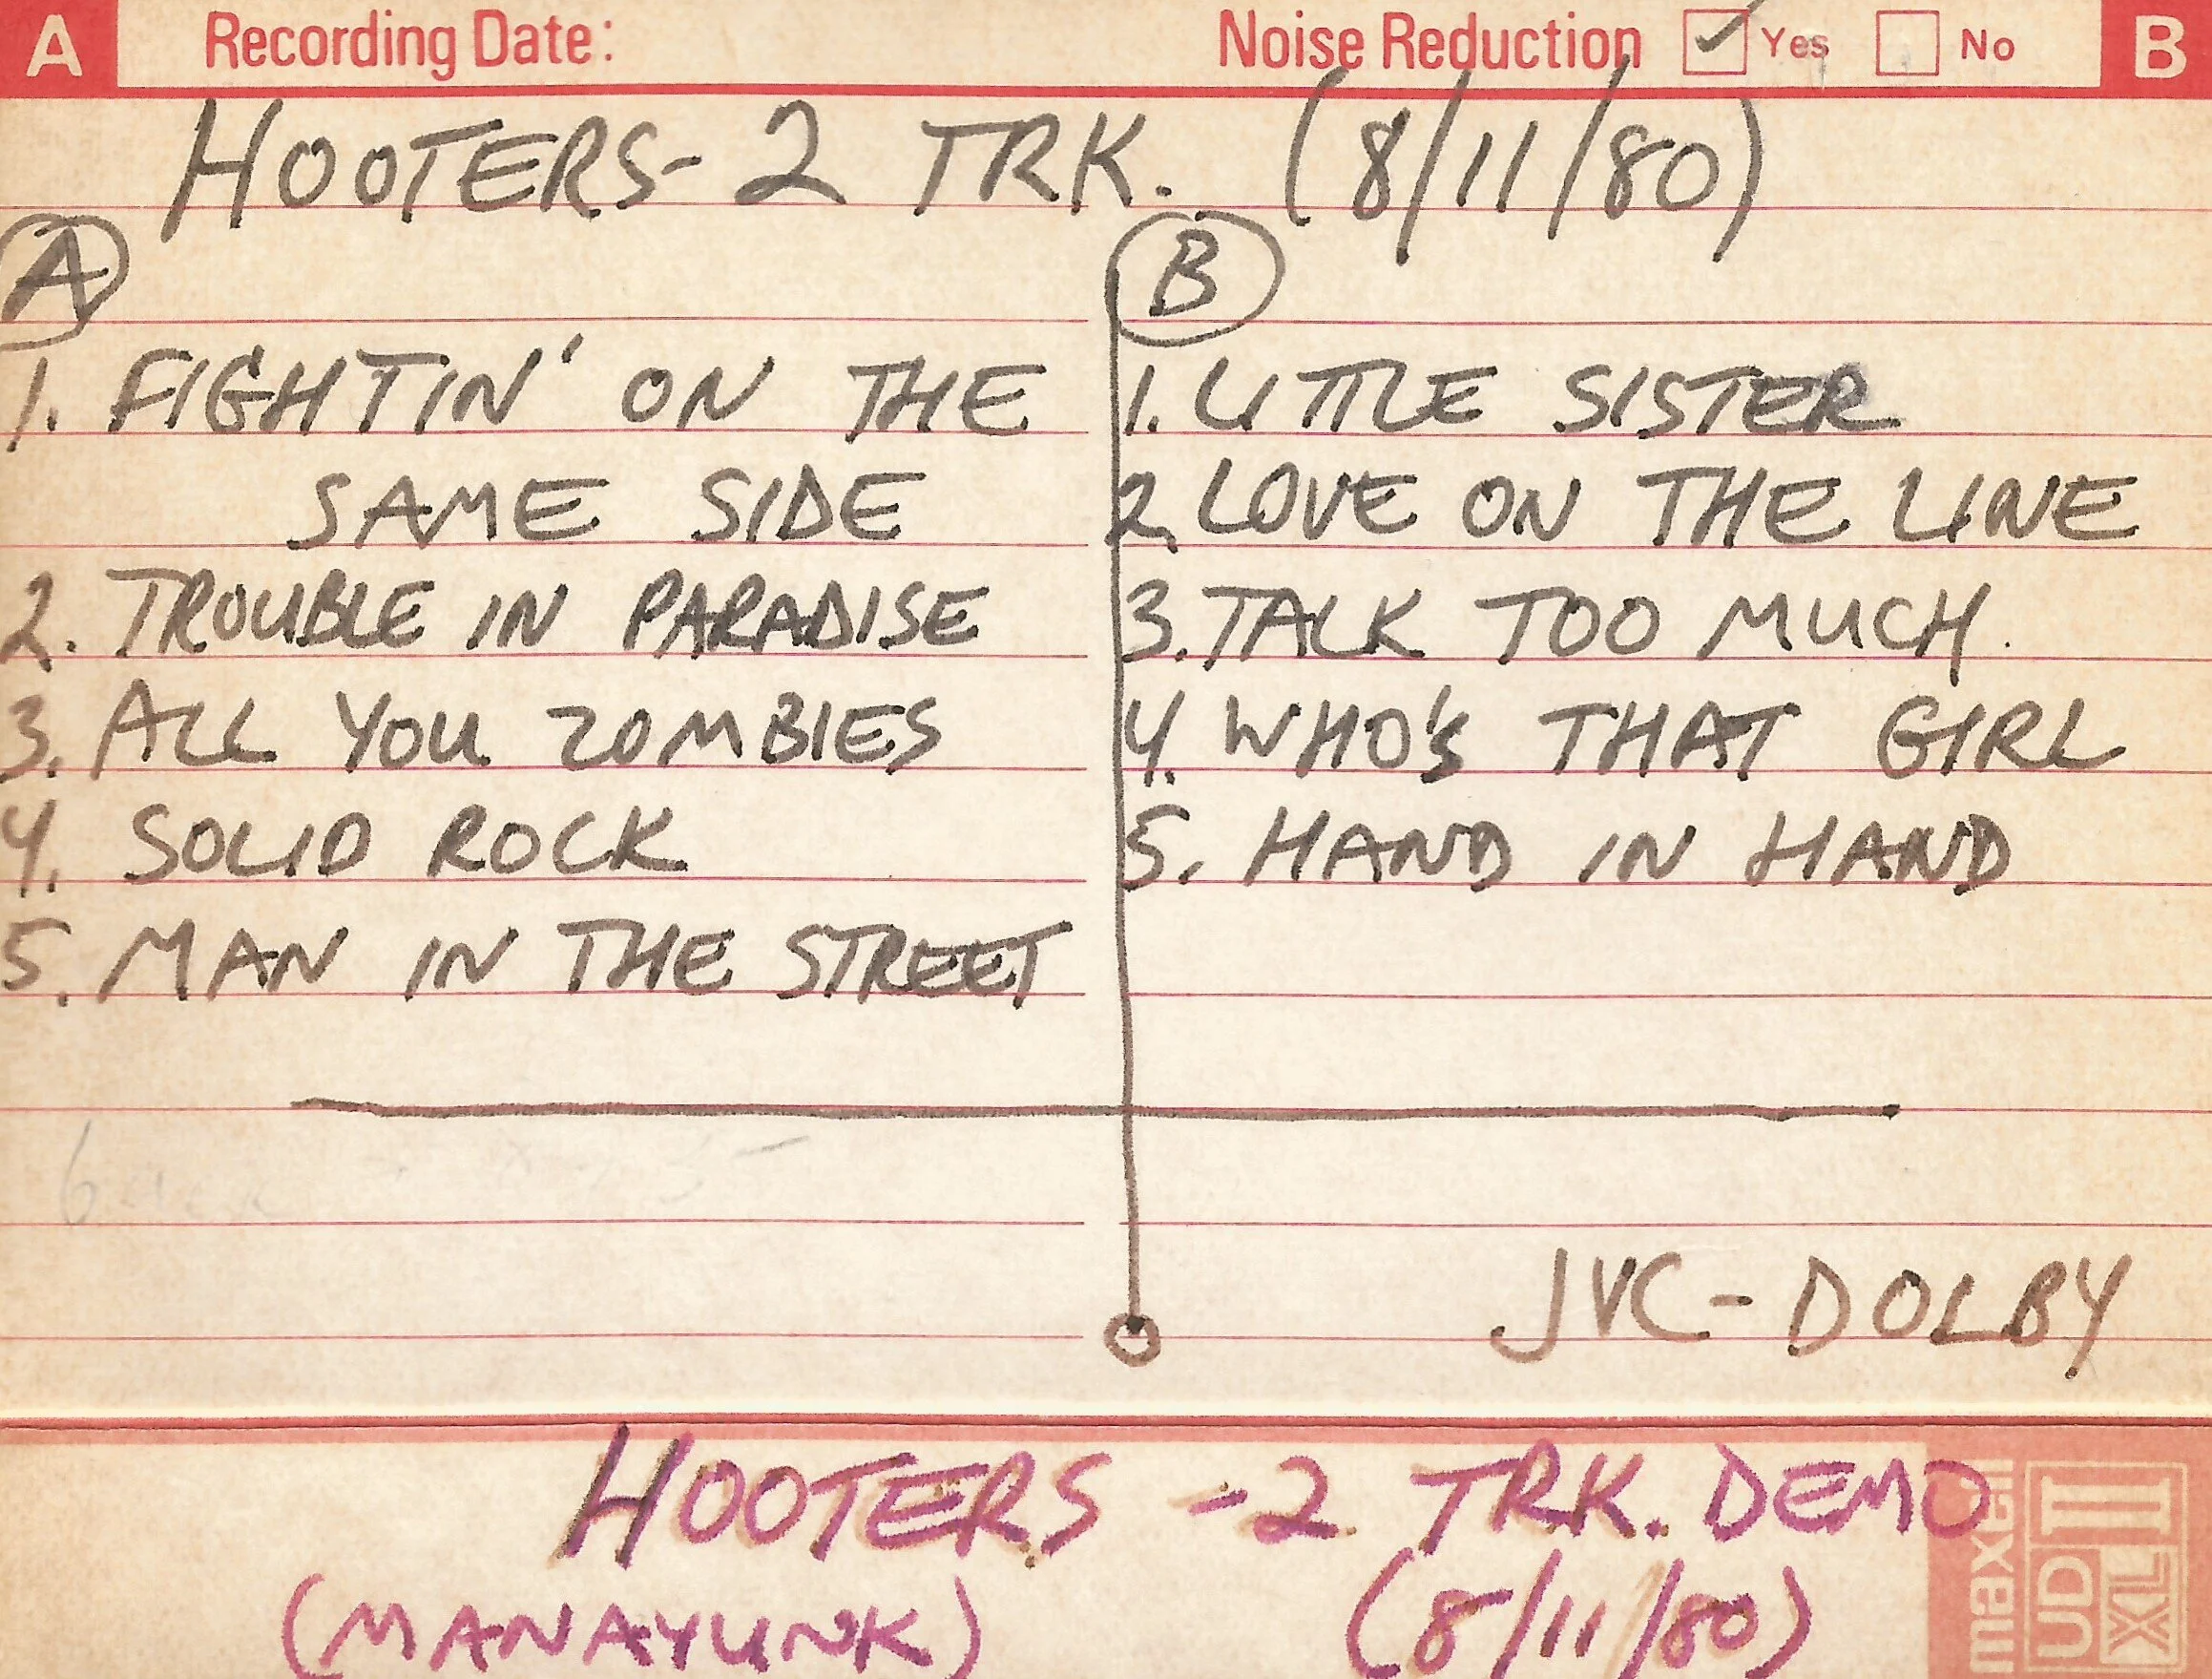 A Recording Date: Noise Reduction Yes No B
HOOTERS- 2 TRK. (8/11/80)
A
1. FIGHTIN' ON THE
SAME SIDE
2. TROUBLE IN PARADISE
3. ALL YOU ZOMBIES
4. SOLID ROCK
5. MAN IN THE STREET
B
1. LITTLE SISTER
2. LOVE ON THE LINE
3. TALK TOO MUCH.
4. WHO'S THAT GIRL
5. HAND IN HAND
JVC-DOLBY
HOOTERS -2 TRK. DEMO
(MANAYUNK) (8/11/80)
maxell
UD XL II